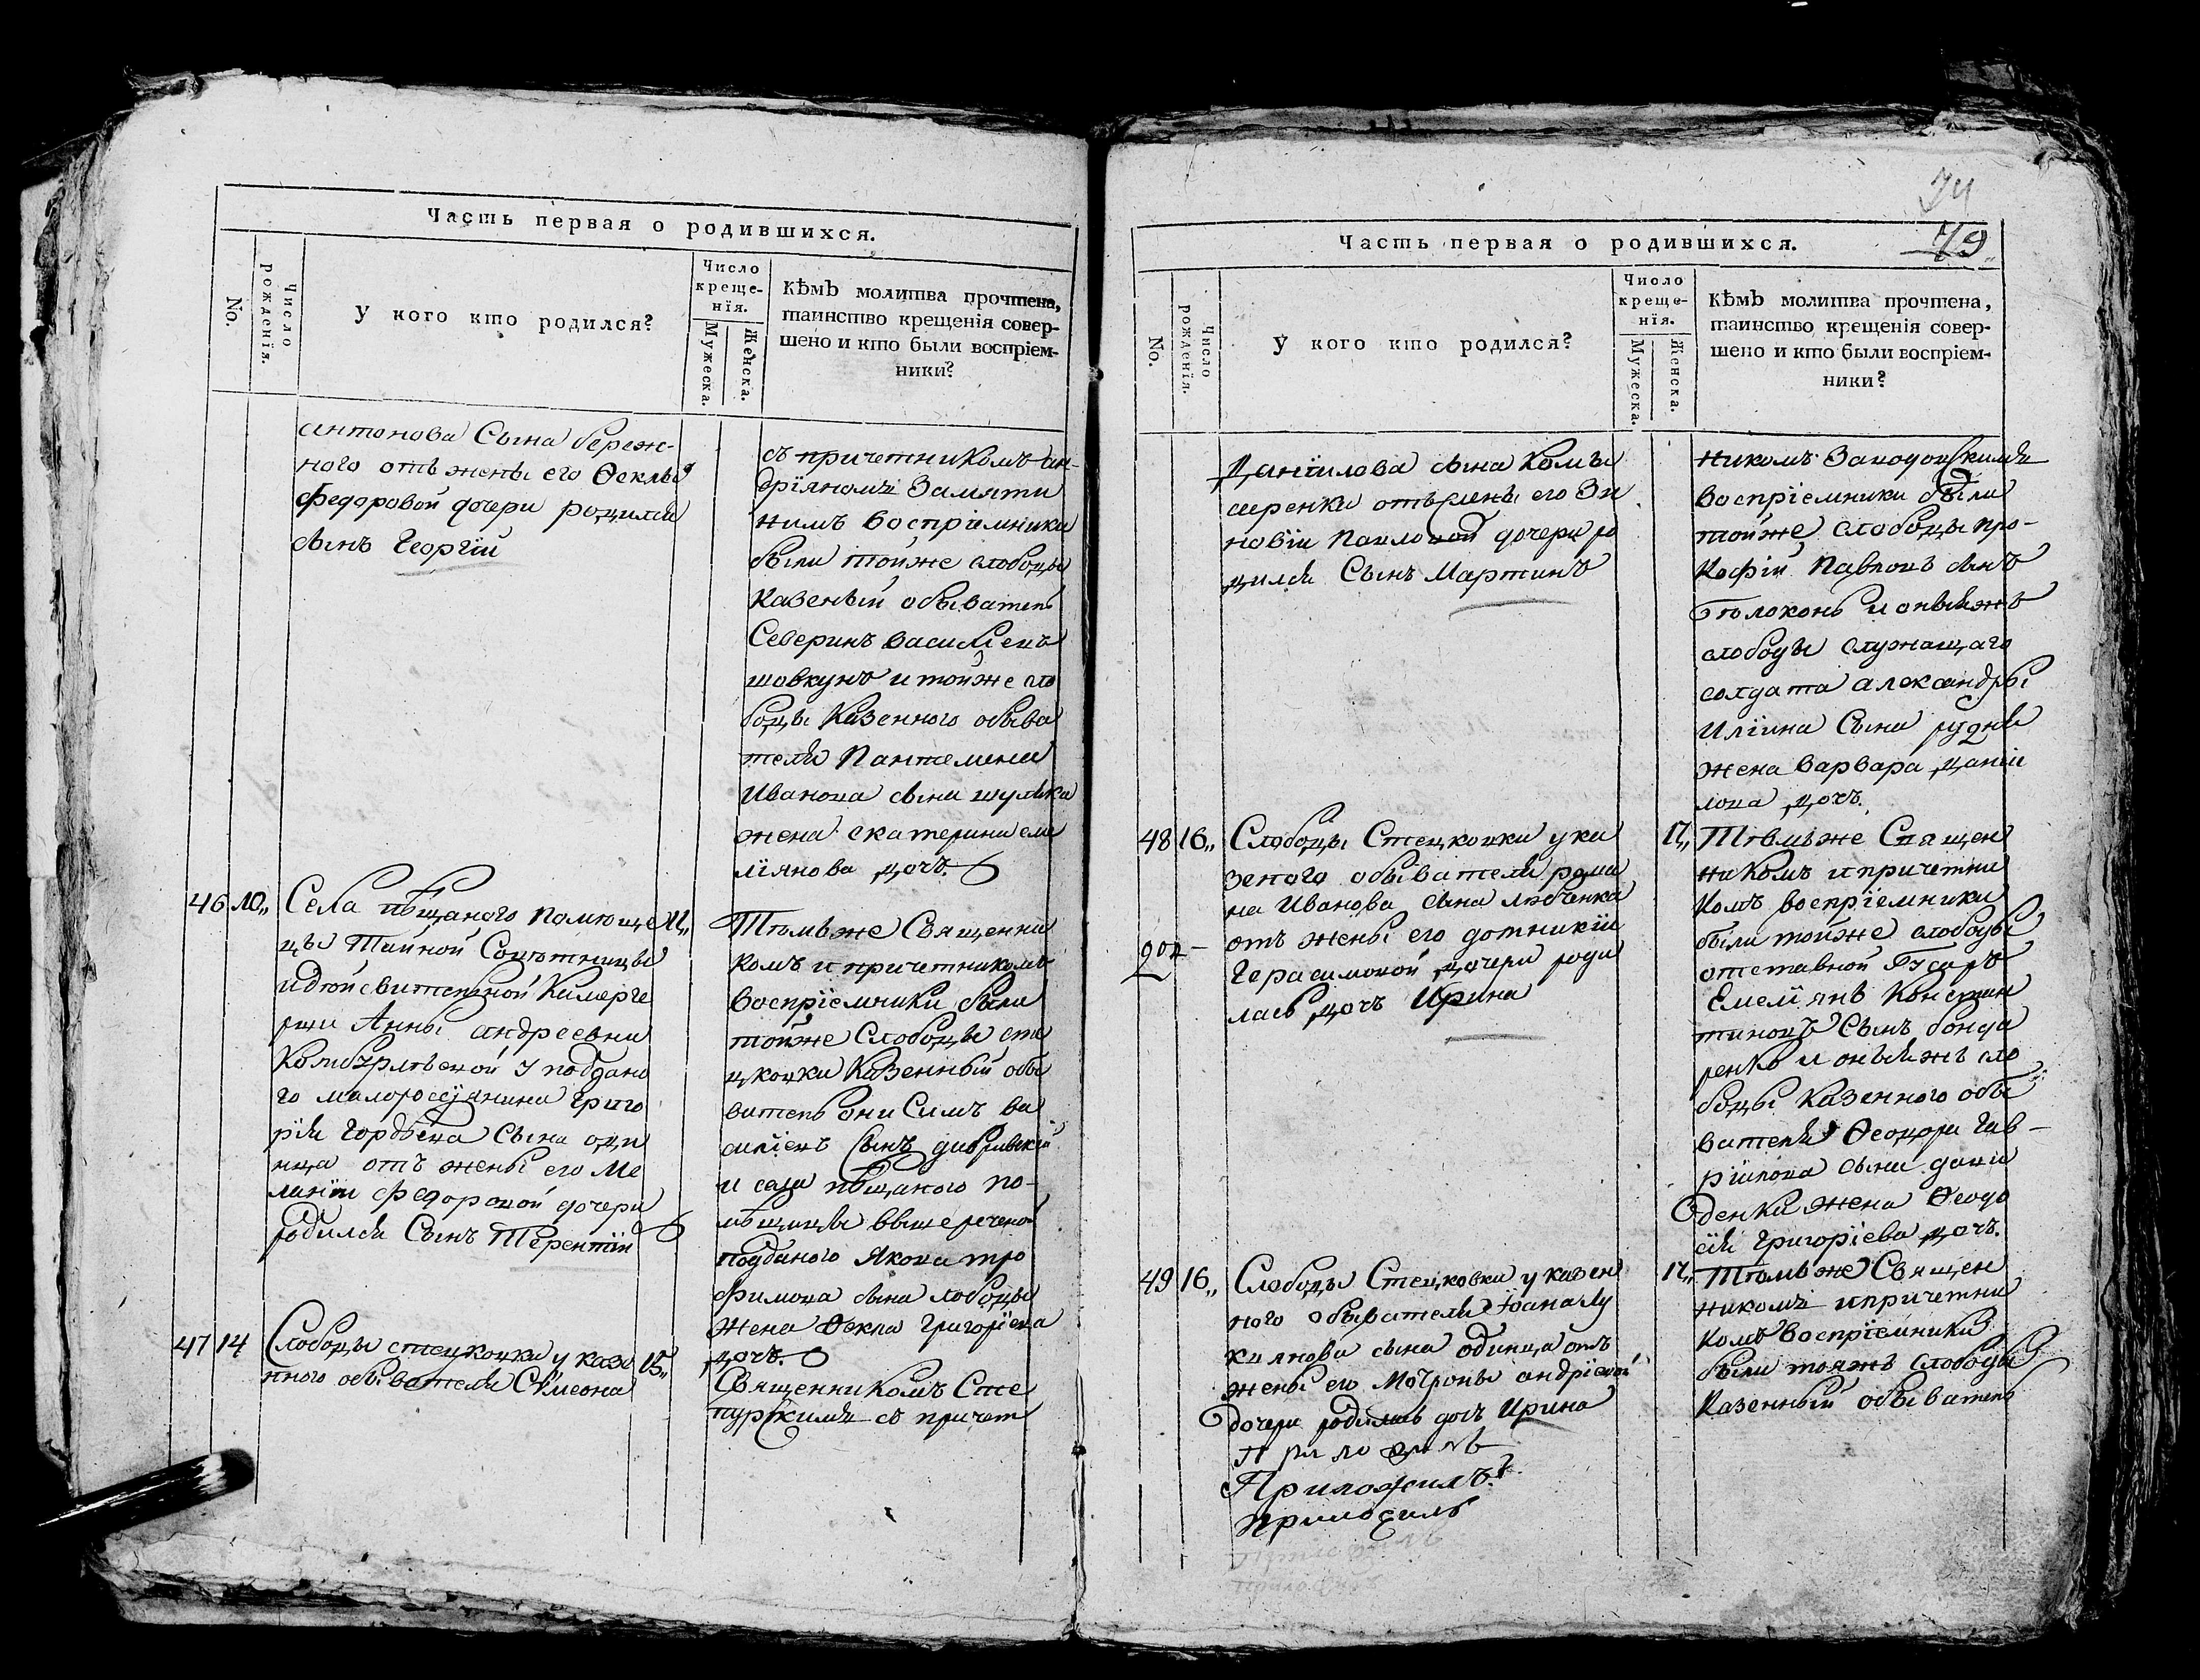 Часть первая о родившихся.
No.
Число рожденія.
У кого кто родился?
Число креще-
нія.
Мужеска.
Женска.
Кѣмъ молитва прочтена,
таинство крещенія совер-
шено и кто были воспріем-
ники?
антонова Сына береж-
ного отъ жены его Ѳеклы
федоровой дочери родился
сынъ Георгій
съ причетникомъ ан-
дріяномъ Замяти
нимъ воспріемники
были тойже слободы
Казеный обыватель
Северинъ василіевъ
шовкунъ и тойже сло
боды Казенного обыва
теля Пантемена
Иванова сына шулика
жена екатерина еме
ліянова дочъ.
46 10,,
Села пѣщаного помѣще
цы Тайной Совѣтницы
и дѣйсвительной Камерге
рши Анны андреевни
у поддано
го малоросіянина Григо
рія Гордѣева Сына оди
нца отъ жены его Ме
ланіи федоровой дочери
родился Сынъ Терентій
11,,
Тѣмъже Священни
комъ и причетникомъ
воспріемники были
тойже Слободы сте
цковки Казенный обы
ватель ониСимъ ва
силіевъ Сынъ
и села пѣщаного по-
мѣщицы вышереченой
подданого Якова тро
фимова сына лободы
Жена Ѳекла Григоріева
дочъ.
47 14
Слободы стецковки у казе
нного обывателя Сѵмеона
15,,
Священникомъ Сте
пурскимъ съ причет
74
79
Часть первая о родившихся.
No.
Число рожденія.
У кого кто родился?
Число креще-
нія.
Мужеска.
Женска.
Кѣмъ молитва прочтена,
таинство крещенія совер-
шено и кто были воспріем-
ники?
Даніилова сына Комы
шренка отъ жены его Зи
новіи Павловой дочери ро
дился Сынъ Мартинъ
никомъ
воспріемники были
тойже слободы про-
Кофій Павловъ сынъ
Толоконь и оныяжъ
слободы служащаго
солдата александры
Иліина Сына рудня
жена варвара даніи
лова дочъ.
48 16,,
Слободы Стецковки у ка
зеного обывателя рома
на Иванова сына любченка
отъ жены его домникіи
Герасимовой дочери роди
лась дочъ Ирина
17,,
Тѣмъже Священ
никомъ и причетни
комъ воспріемники
были тойже слободы
отставной Гусаръ
Емеліянъ Констан
тиновъ Сынъ бонда
ренко и оныяжъ сло
боды Казенного обы
вателя Ѳеодора Гав-
ріилова сына дави
денка жена Ѳеодо
сія Григоріева дочъ.
49 16,,
Слободы Стецковки у казен
ного обывателя Іоана Лу
киянова сына одинца отъ
жены его Мотроны андріевой
дочери родилась дочъ Ирина
Приложилъ
Приложилъ
приложилъ
17,,
Тѣмъже Священ
никомъ и причетни
комъ воспріемники
были тояжъ Слободы
Казенный обыватель